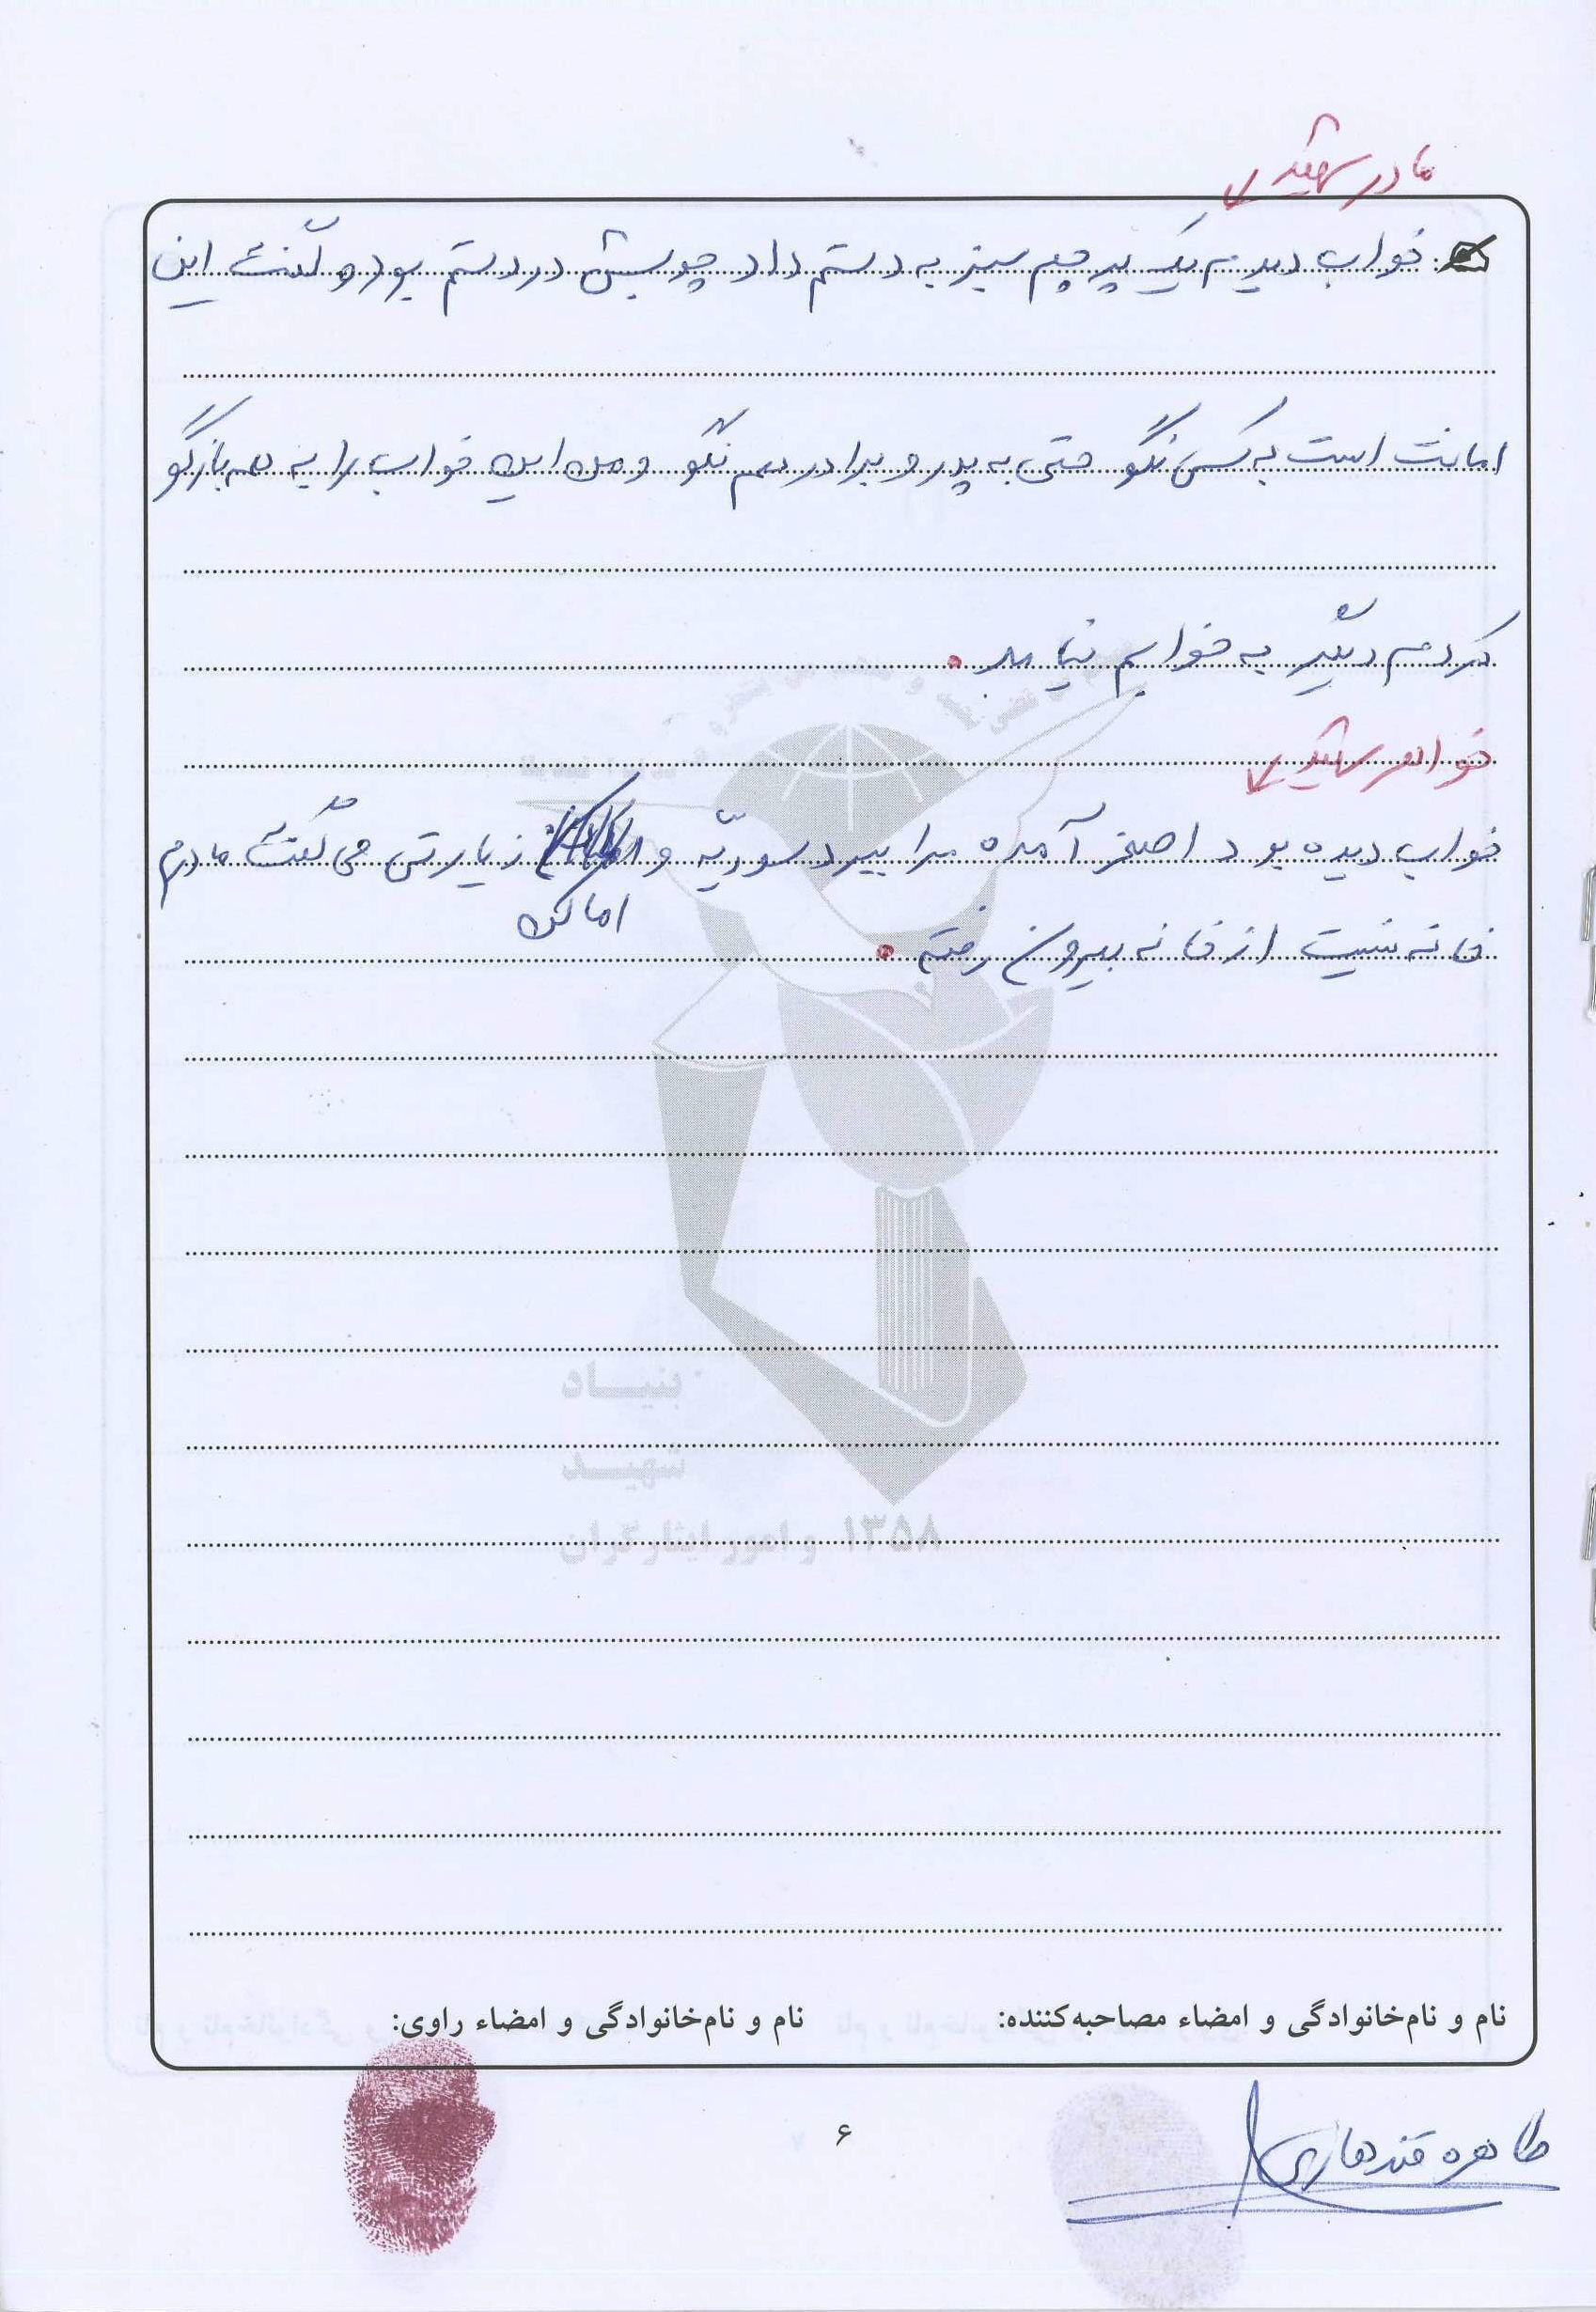 مادر شهید
خواب دیدم یک پرچم سبز به دستم داد چوبش در دستم بود و گفت این
امانت است به کسی نگو حتی به پدر و برادرم هم نگو و من این خواب را به همه بازگو
کردم دیگر به خوابم نیامد.
خواهر شهید
خواب دیده بود اصغر آمده مرا ببرد سوریه و اماکن زیارتی می گفت مادرم
خانه نیست از خانه بیرون رفته.
بنیاد
شهید
و امور ایثارگران ۱۳۵۸
نام و نام‌خانوادگی و امضاء مصاحبه‌کننده: نام و نام‌خانوادگی و امضاء راوی:
طاهره قندهاری
۶